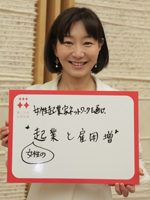 女性起業家ネットワークを通じ、
"起業と雇用増"
女性の